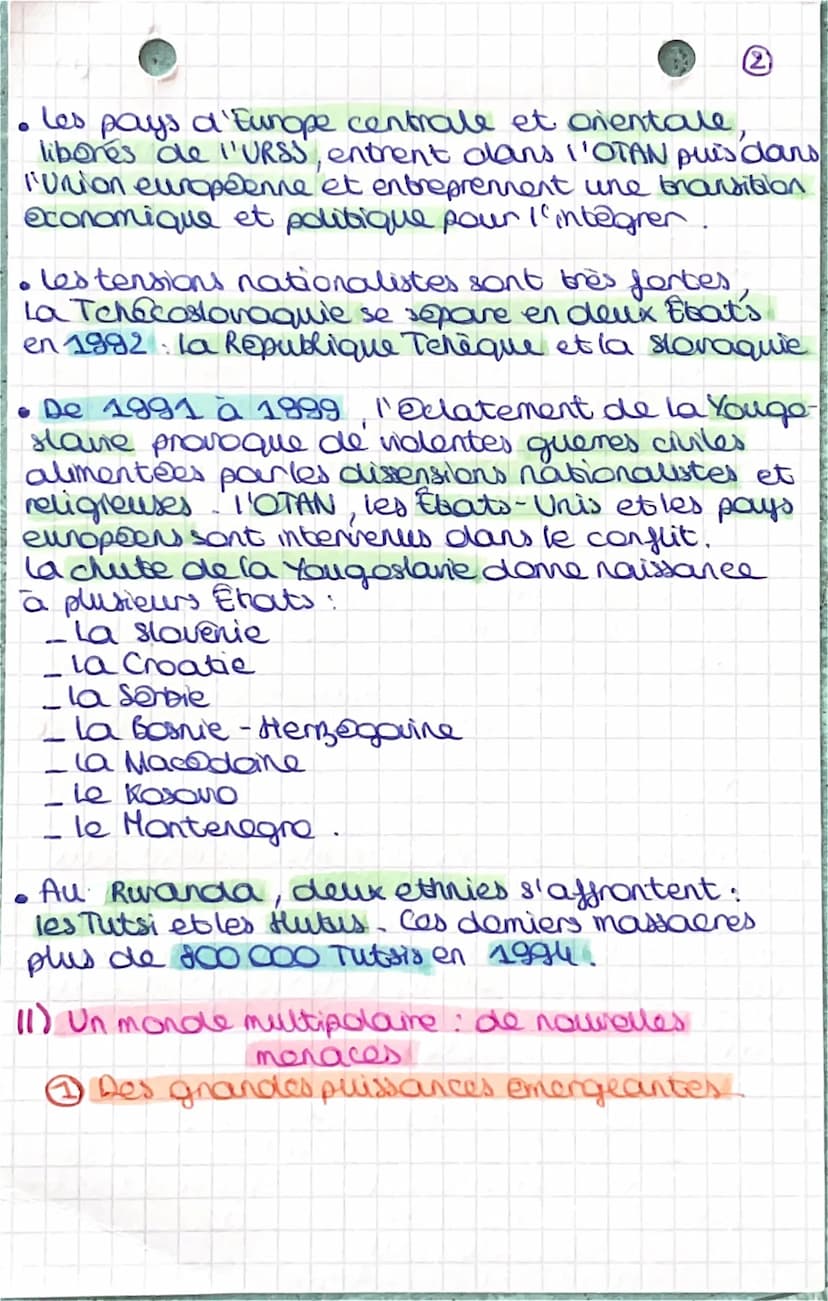 ②
• Les pays d'Europe centrale et orientale,
libérés de l'URSS, entrent dans l'OTAN puis dans
l'Union européenne et entreprennent une transition
économique et politique pour l'intégrer.
• Les tensions nationalistes sont très fortes,
La Tchécoslovaquie se sépare en deux États
en 1992 : la République Tchèque et la Slovaquie
• De 1991 à 1999, l'éclatement de la Yougo-
slavie provoque de violentes guerres civiles
alimentées par les dissensions nationalistes et
religieuses. l'OTAN, les États-Unis et les pays
européens sont intervenus dans le conflit.
La chute de la Yougoslavie donne naissance
à plusieurs États :
- La Slovénie
- la Croatie
- la Serbie
- la Bosnie-Herzégovine
- la Macédoine
- Le Kosovo
- le Montenegro.
• Au Rwanda, deux ethnies s'affrontent :
les Tutsi et les Hutus. Ces derniers massacres
plus de 800 000 Tutsis en 1994.
II) Un monde multipolaire : de nouvelles
menaces
① Des grandes puissances émergeantes.